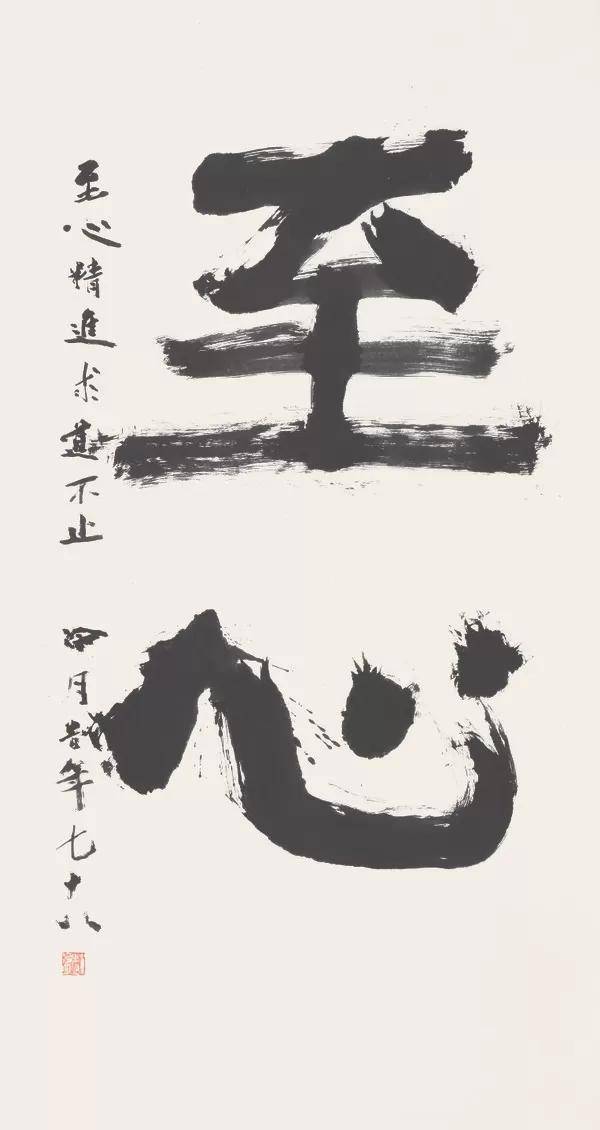 至心
至心精進求道不止
月書年七十八